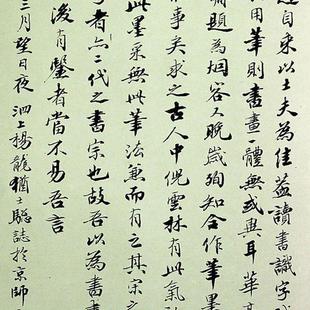 起自來以士夫為佳蓋讀書識字
用筆則畫畫體無或與耳華
翰題為烟客人晚歲殉知合作筆墨
事矣求之古人中倪雲林有此氣
此墨采無此筆法兼而有之其宋
者二代之書宗也故吾以為書
後有鑒者當不易吾言
三月望日夜泗上楊龍猶士驄誌於京師